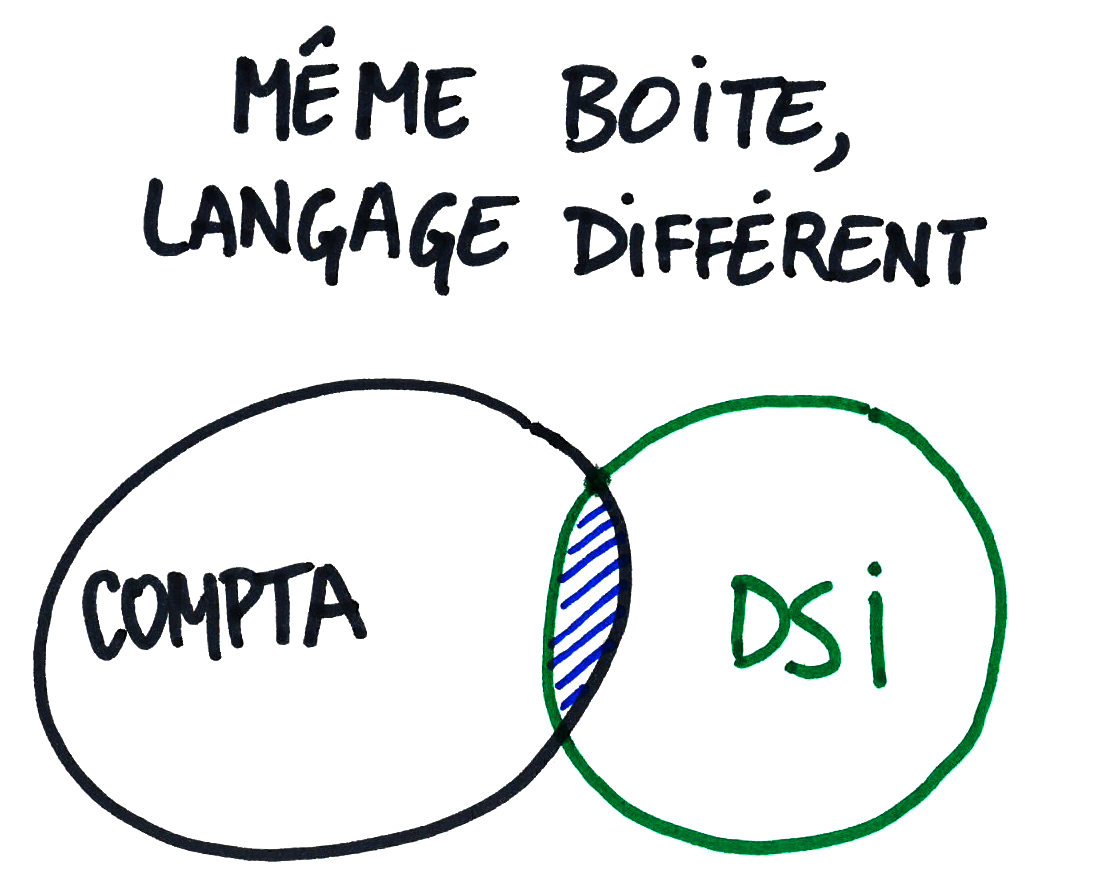 MÊME BOiTE,
LANGAGE DiFFÉRENT
COMPTA
DSi